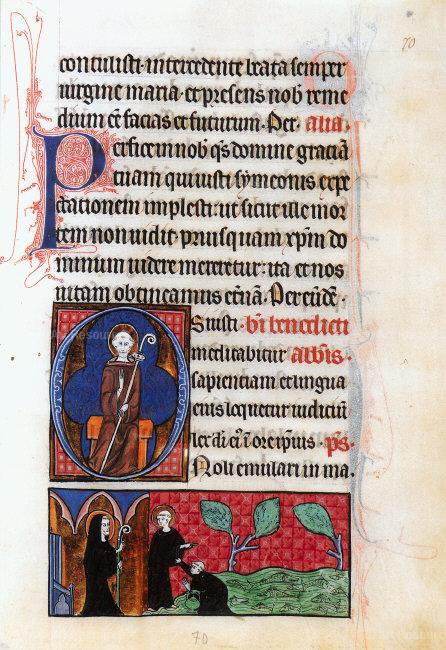 70
contulisti· intercedente beata semper
uirgine maria· et presens nob reme
dium ee facias et futurum· Per· alia·
Perfice in nob qs domine graciā
tuam qui iusti symeonis expe
ctationem implesti: ut sicut ille mor
tem non uidit prius quam xpm do
minum uidere meretetur: ita et nos
uitam obtineamus etnā· Per eūde·
Os iusti· bi benedicti
meditabitur abbis·
sapienciam et lingua
eius loquetur iudiciū
lex di ei i corde ipsius· ps·
Noli emulari in ma·
70